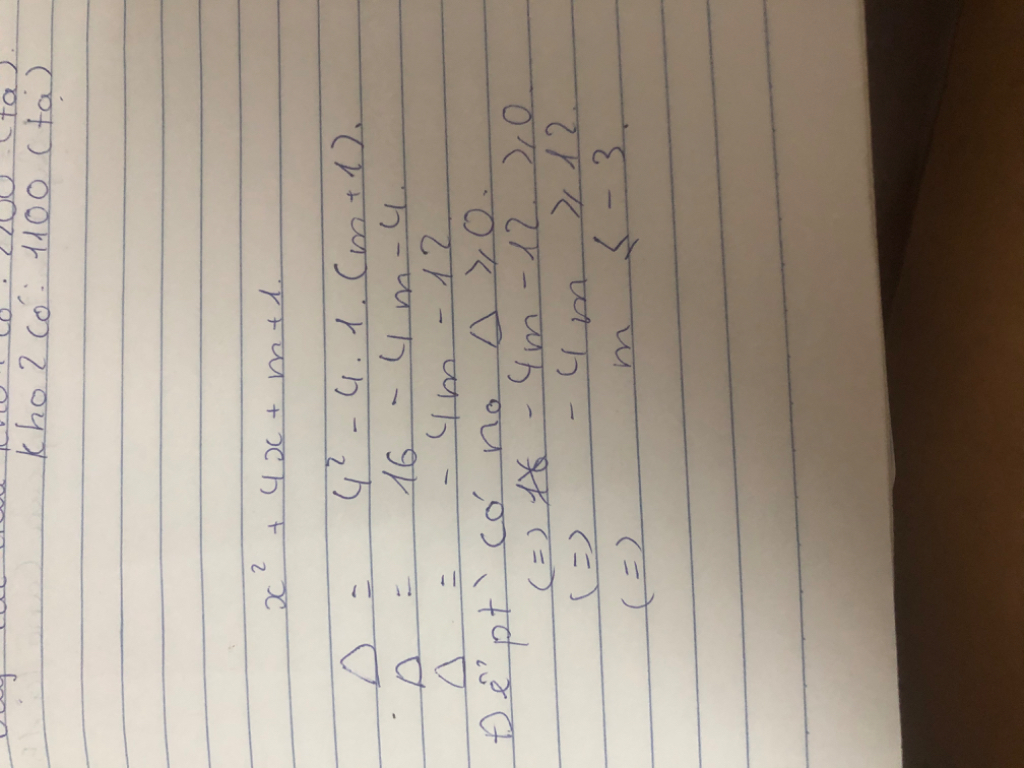 kho 2 có: 1100 (tạ)
x² + 4x + m + 1.
Δ = 4² - 4.1.(m+1).
Δ = 16 - 4m - 4.
Δ = - 4m - 12
Để pt có no Δ ≥ 0.
(=) - 4m - 12 ≥ 0
(=) - 4m ≥ 12
(=) m ≤ - 3.